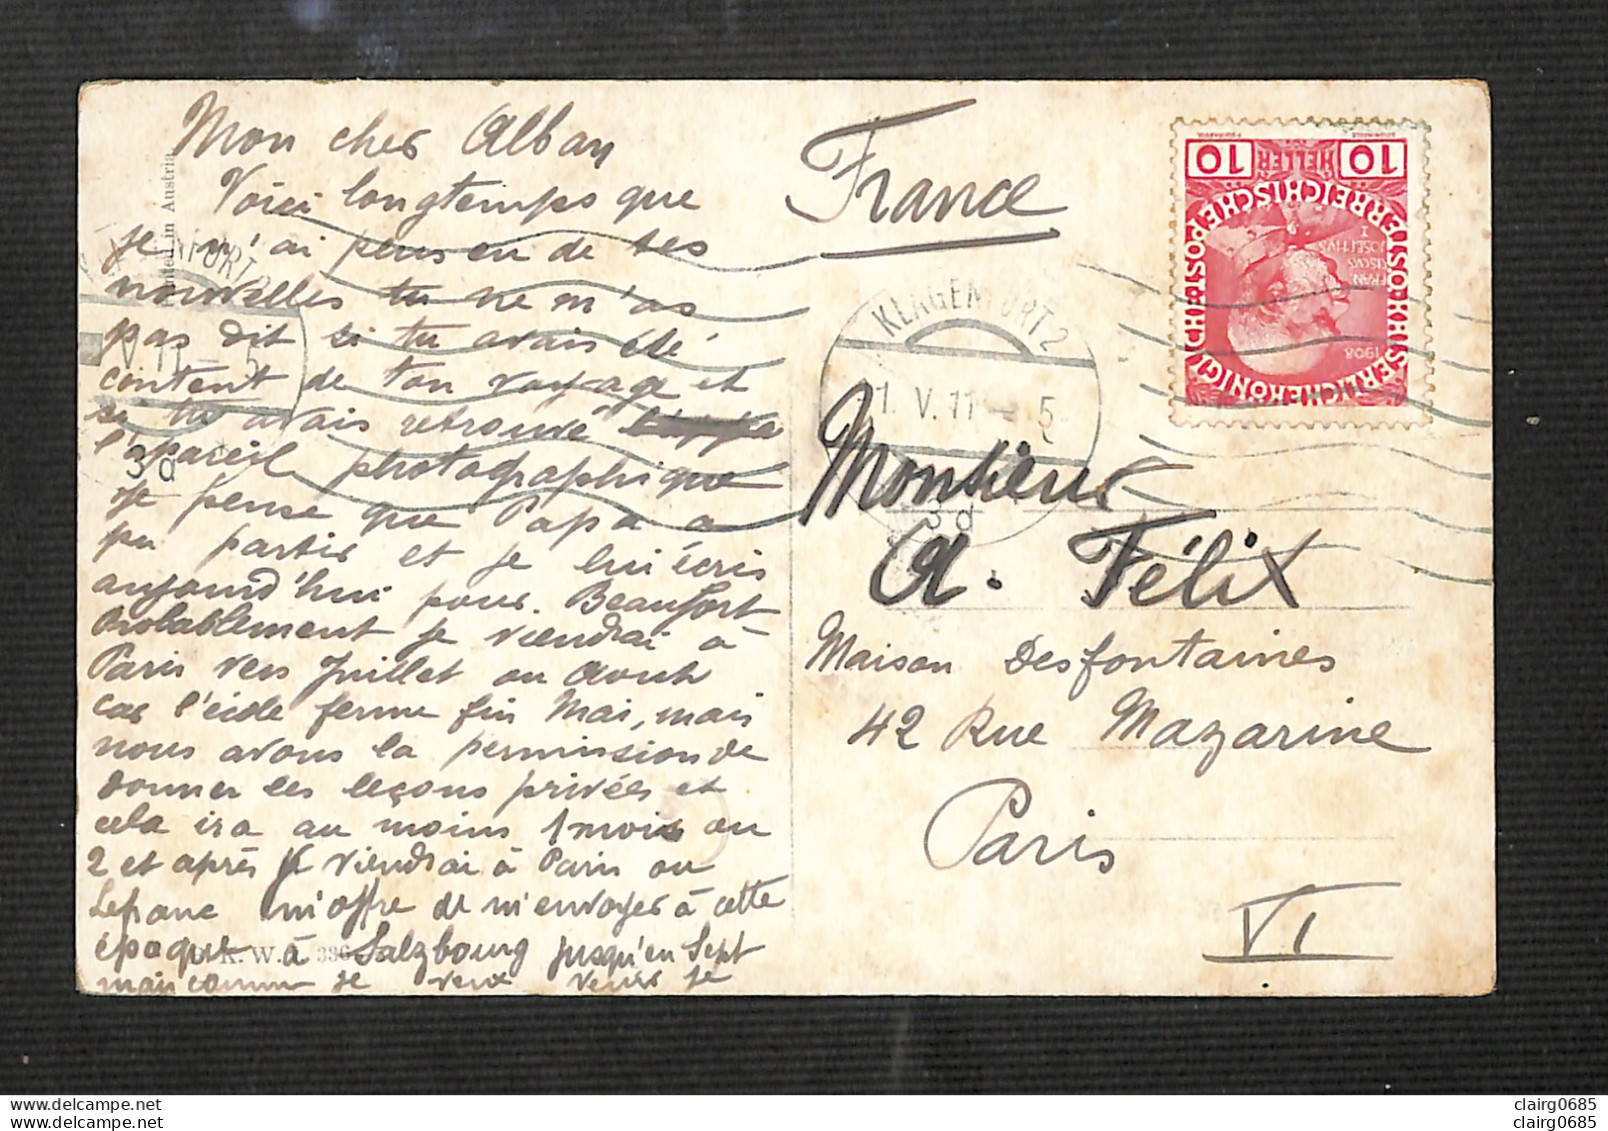 Mon cher Alban
Voici longtemps que
je n'ai pas eu de tes
nouvelles tu ne m'as
pas dit si tu avais été
content de ton voyage et
si tu avais retrouvé
l'apareil photographique
je pense que Papa a
pu partir et je lui écris
aujourd'hui pour Beaufort
Probablement je viendrai à
Paris vers Juillet ou Aout
car l'école ferme fin Mai, mais
nous avons la permission de
donner des leçons privées et
cela ira au moins 1 mois ou
2 et après je viendrai à Paris ou
Lefranc m'offre de m'envoyer à cette
époque à Salzbourg jusqu'en Sept
mais comme je veux venir je
Printed in Austria
K. W. 336
France
KLAGENFURT 2
1. V. 11 - 5
3d
KLAGENFURT 2
V. 11 - 5
3d
10 HELLER 10
KAISERLICHE KÖNIGLICHE ÖSTERREICHISCHE POST
FRANCISCUS JOSEPHUS I
1908
Monsieur
A. Félix
Maison Desfontaines
42 Rue Mazarine
Paris
VI
clairg0685
clairg0685
clairg0685
clairg0685